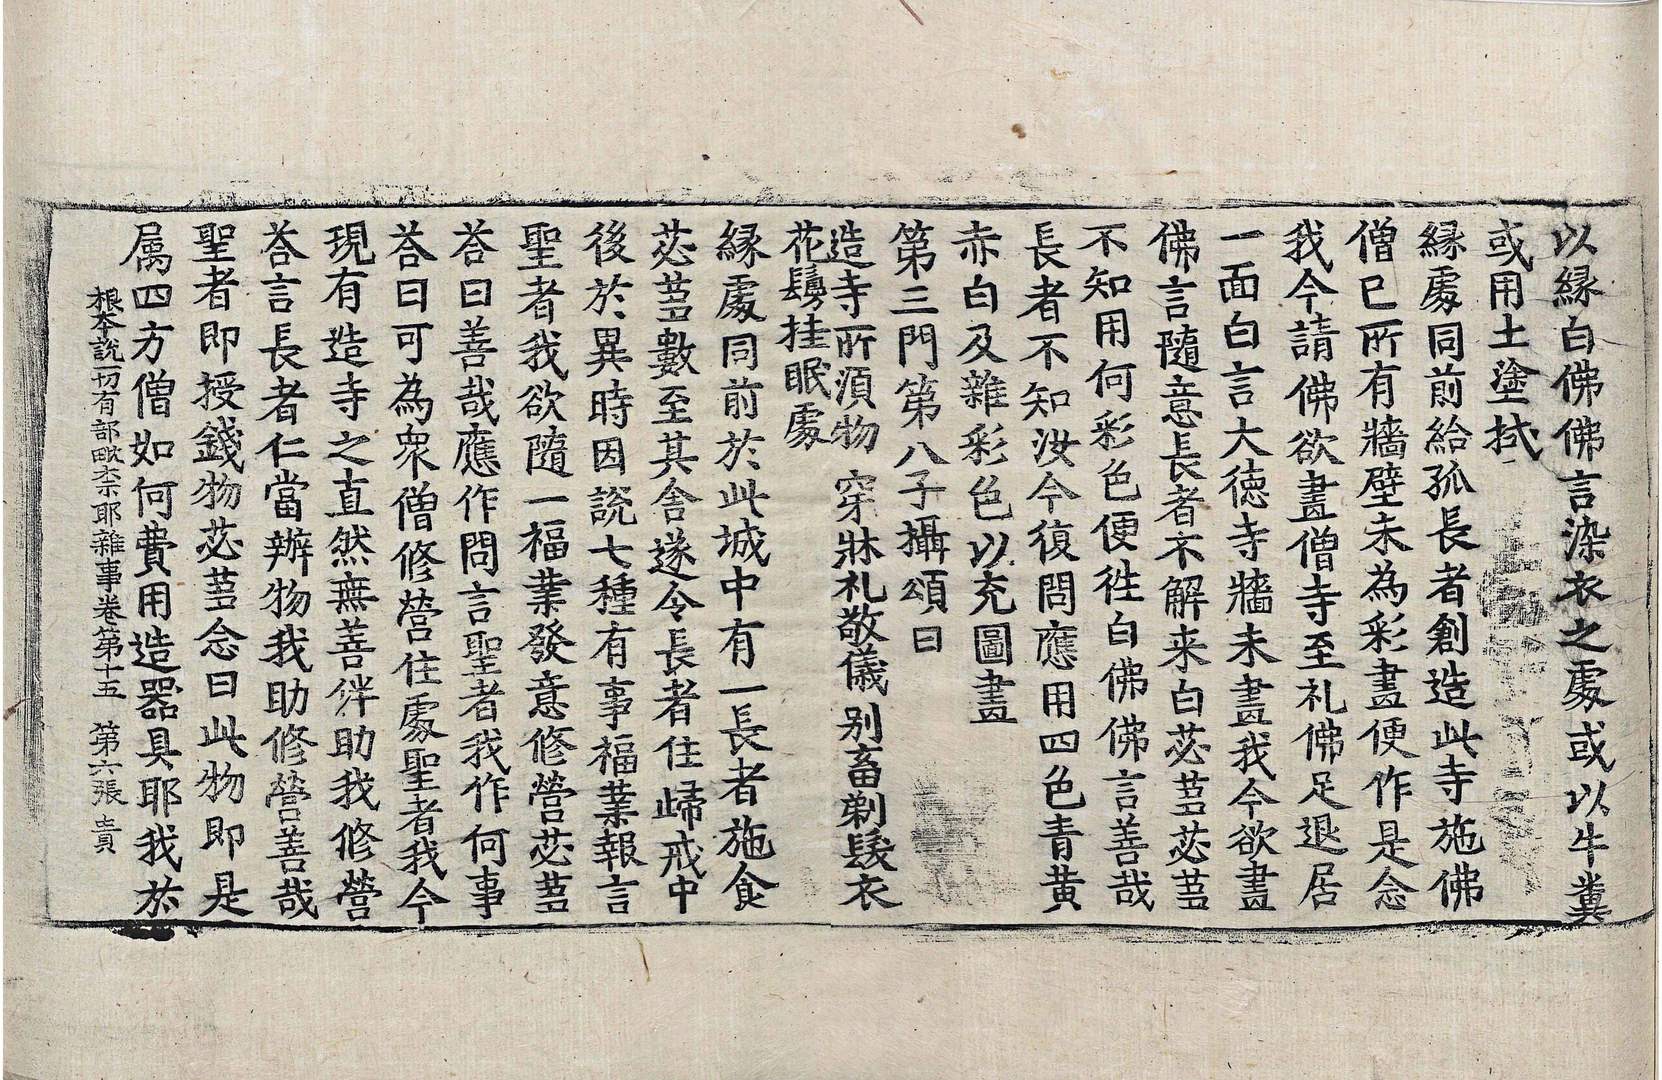 以縁白佛佛言染衣之處或以牛糞
或用土塗拭
縁處同前給孤長者創造此寺施佛
僧已所有牆壁未為彩畫便作是念
我今請佛欲畫僧寺至礼佛足退居
一面白言大徳寺牆未畫我今欲畫
佛言隨意長者不解来白苾芻苾芻
不知用何彩色便徃白佛佛言善哉
長者不知汝今復問應用四色青黄
赤白及雜彩色以充圖畫
第三門第八子攝頌曰
造寺所須物 穿牀礼敬儀 别畜剃髮衣
花鬘挂眠處
縁處同前於此城中有一長者施食
苾芻數至其舎遂令長者住歸戒中
後於異時因說七種有事福業報言
聖者我欲隨一福業發意修營苾芻
荅曰善哉應作問言聖者我作何事
荅曰可為衆僧修營住處聖者我今
現有造寺之直然無善伴助我修營
荅言長者仁當辦物我助修營善哉
聖者即授錢物苾芻念曰此物即是
属四方僧如何費用造器具耶我於
根本說一切有部毗奈耶雜事卷第十五 第六張 貴